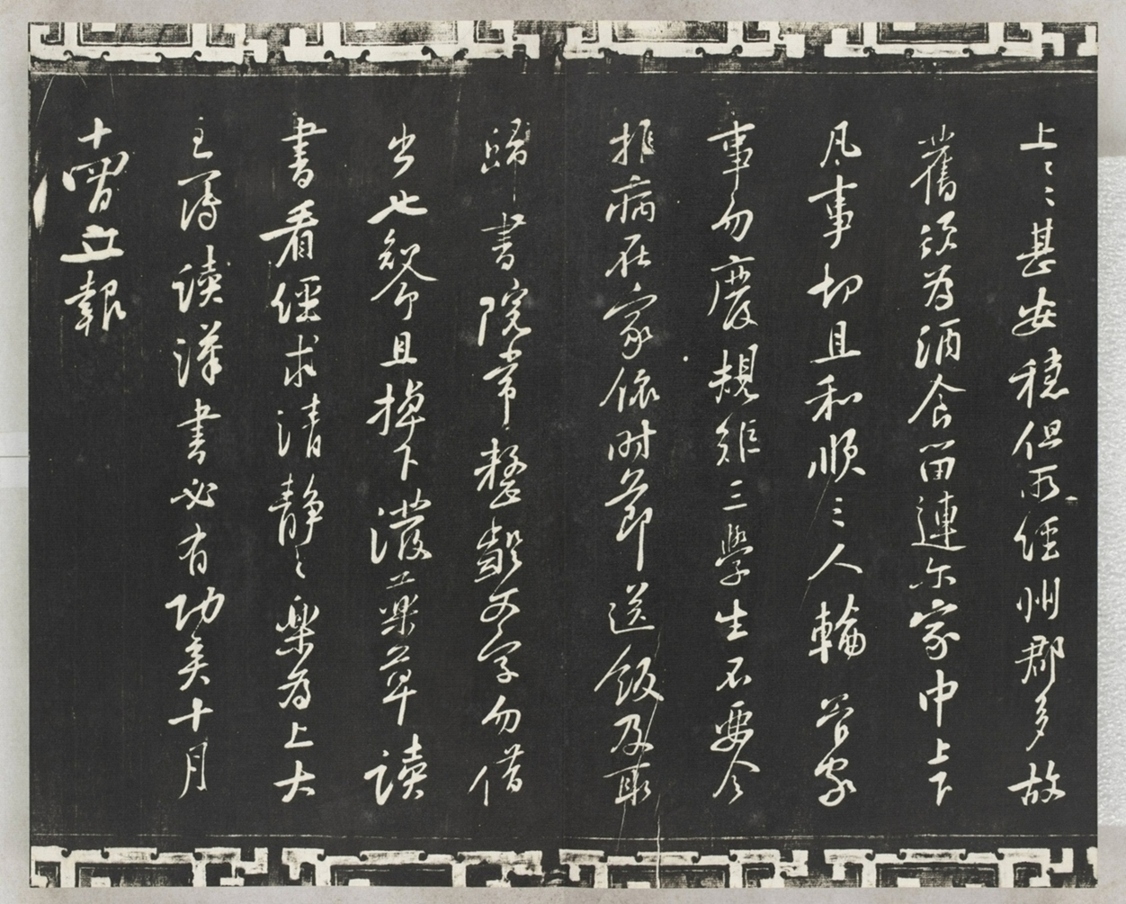 上〻〻甚安穩但所經州郡多故
舊須為酒食留連尔家中上下
凡事切且和順三人輪管家
事勿廢規矩三學生不要令
推病在家依時節送飯及取
歸書院常整齪文字勿借
出也知命且掉下潑藥草讀
書看經求清靜之樂為上大
主簿讀漢書必有功矣十月
十報